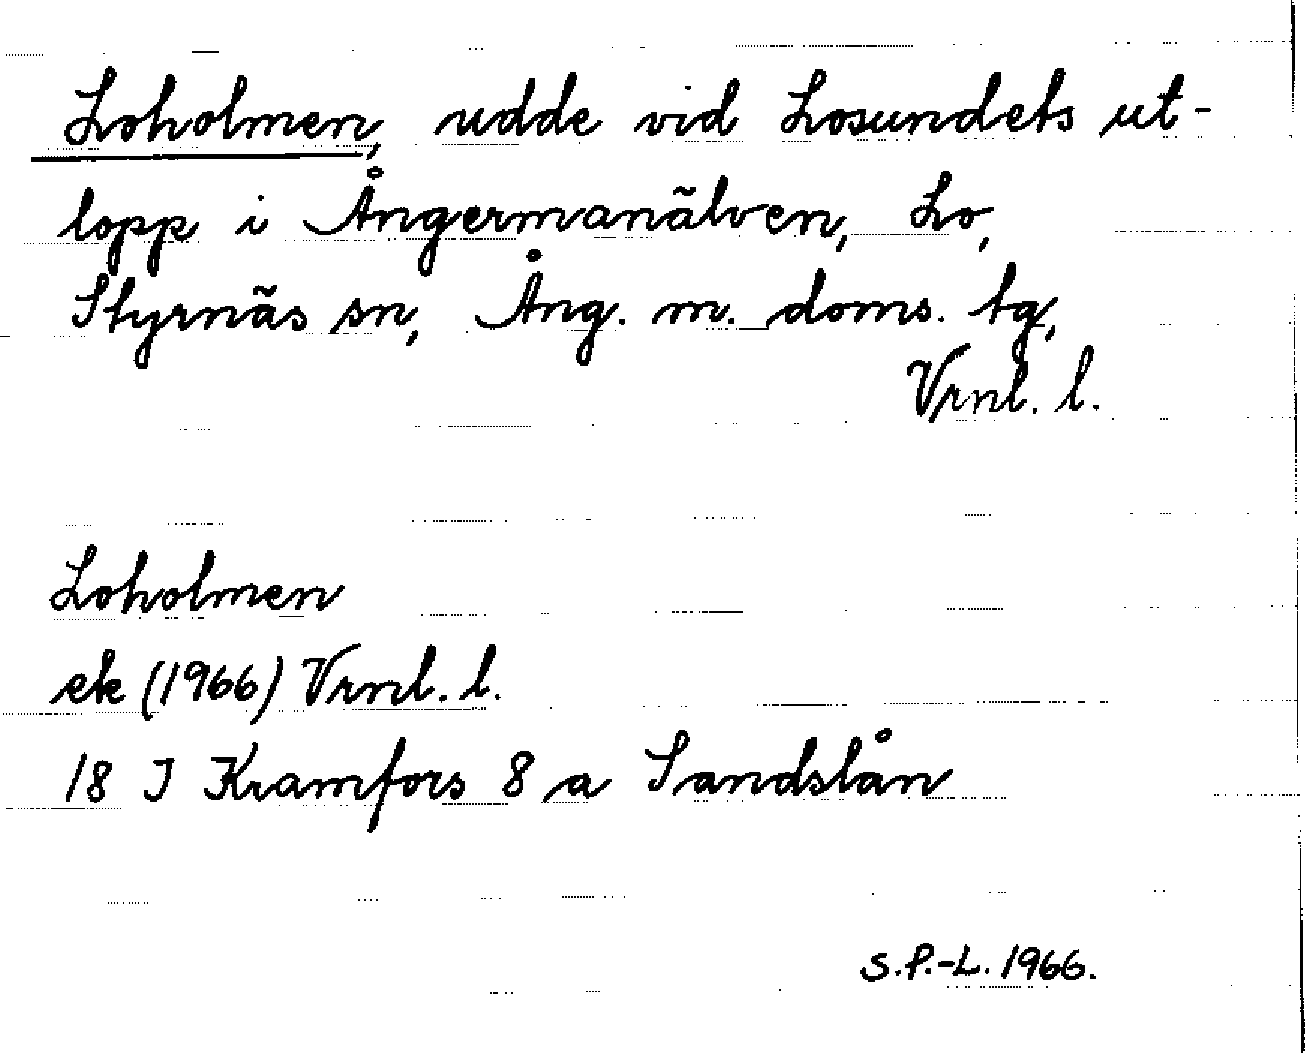 Loholmen, udde vid Losundets ut-
lopp i Ångermanälven, Lo,
Styrnäs sn, Ång. m. doms. tg,
Vrnl. l.
Loholmen
ek (1966) Vrnl. l.
18 I Kramfors 8 a Sandslån
S.P.-L. 1966.